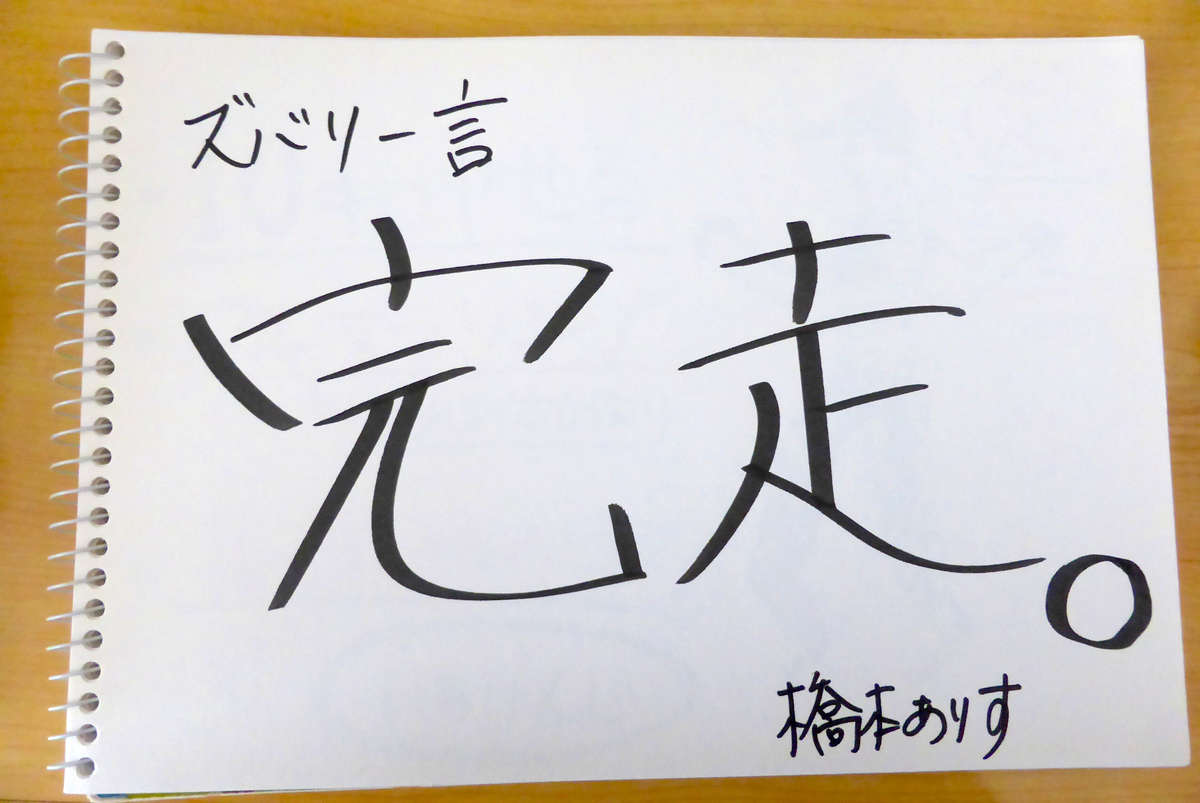 ズバリ一言
完走。
橋本ありす